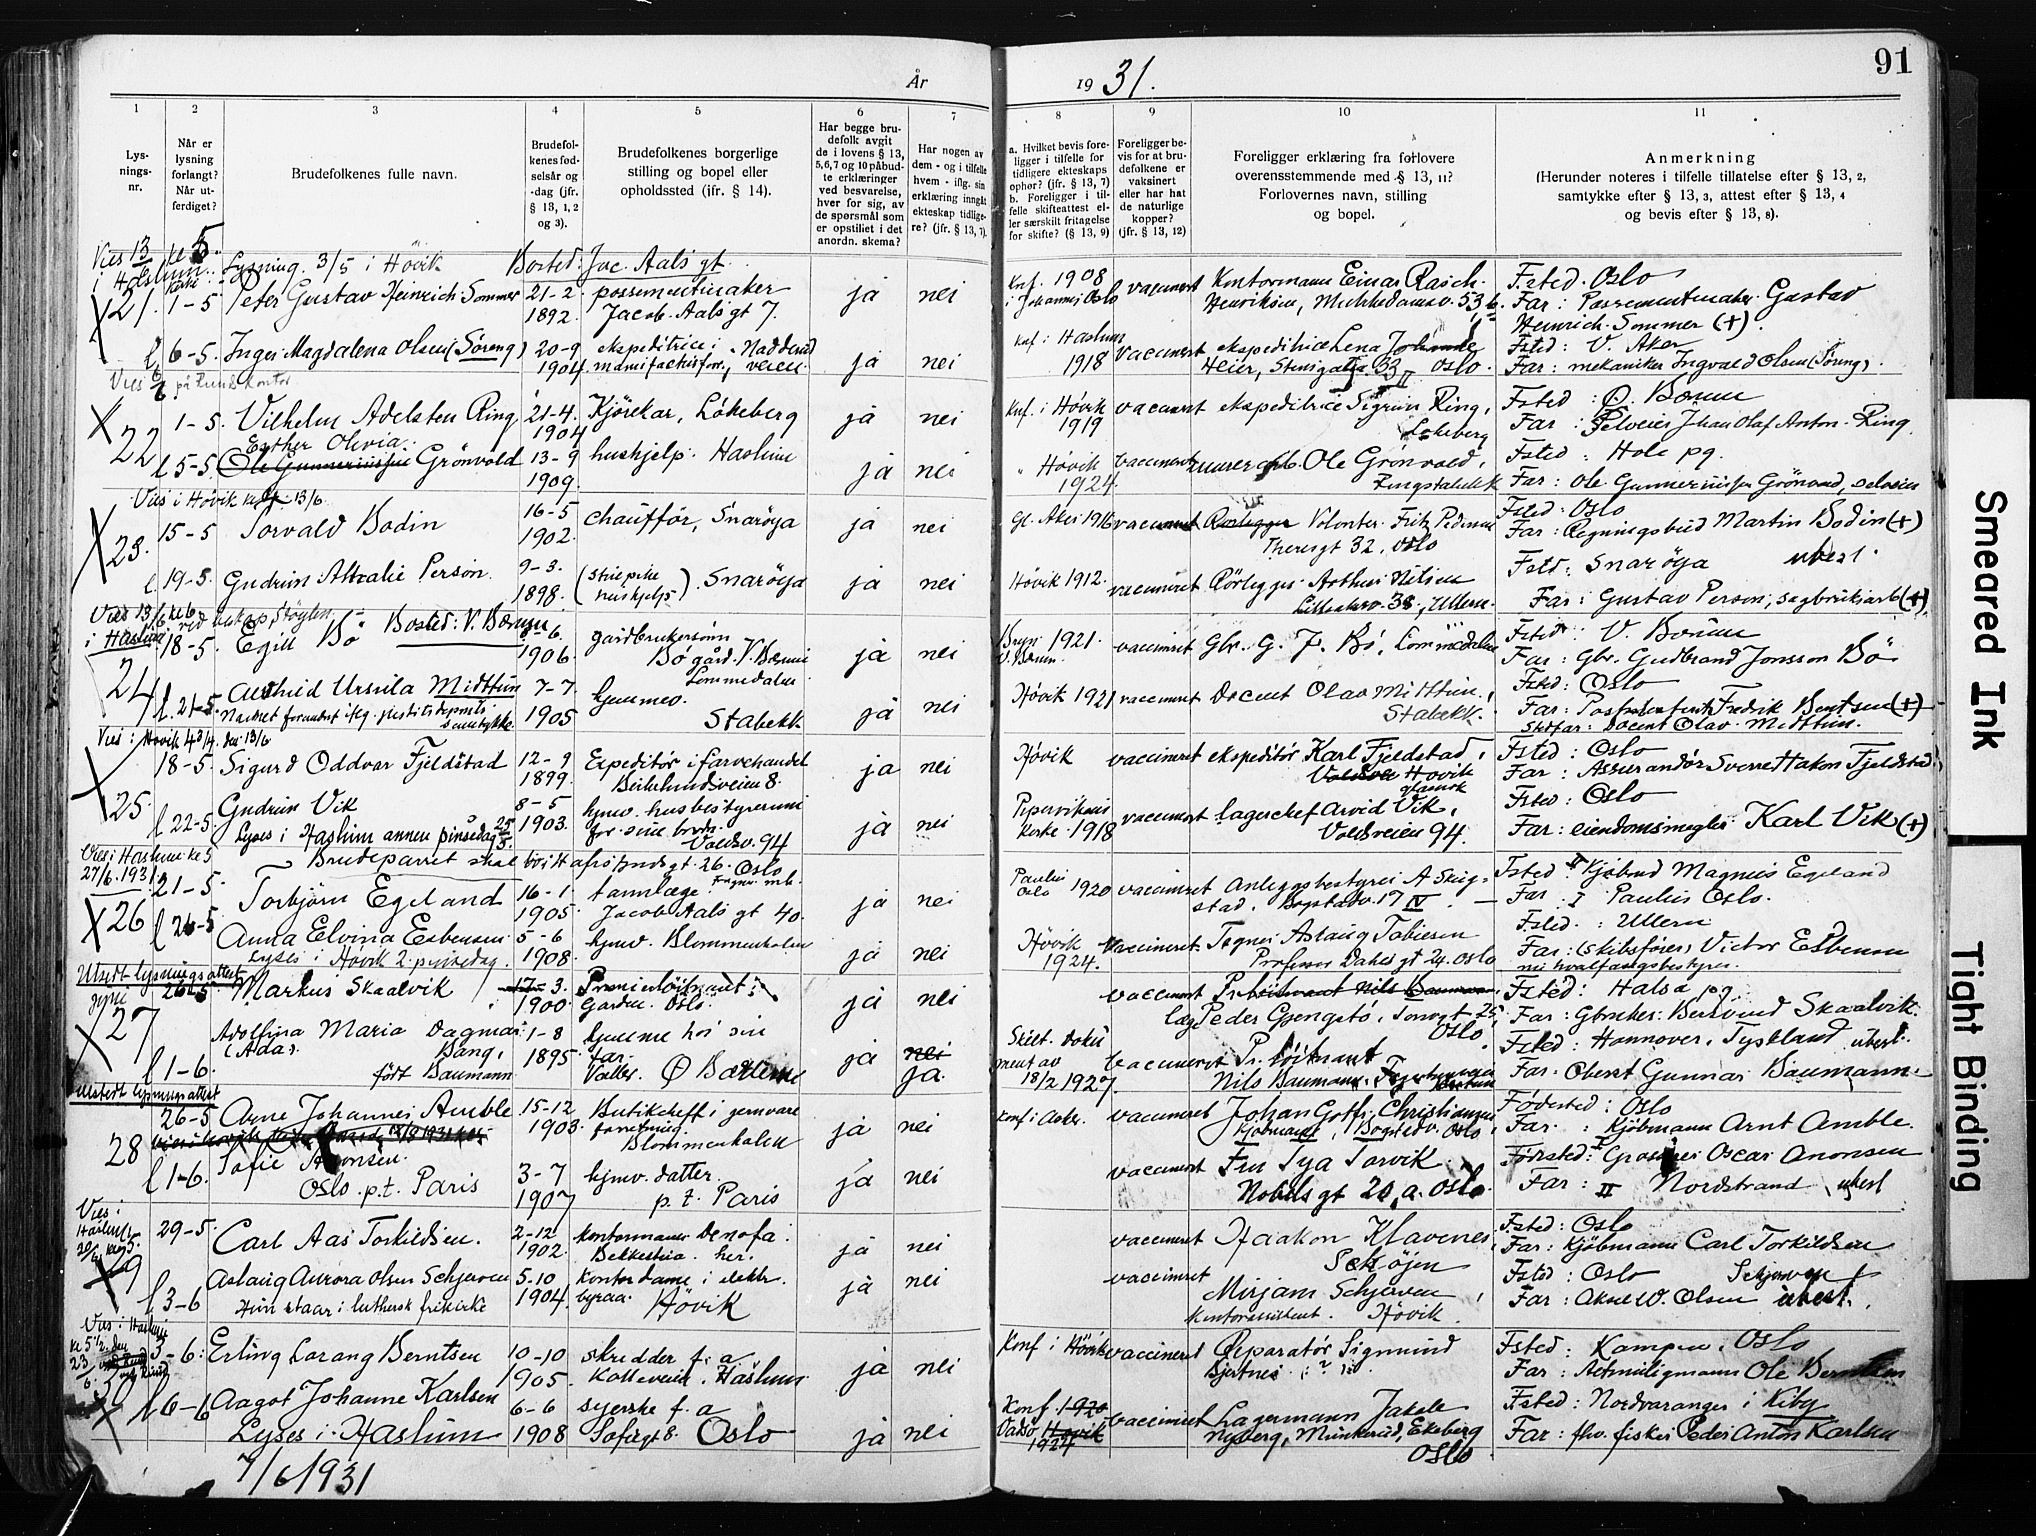 91
År 1931.
1 2 3 4 5 6 7 8 9 10 11
Lysnings-nr.
Når er lysning forlangt? Når utferdiget?
Brudefolkenes fulle navn.
Brudefolkenes fødselsår og -dag (jfr. § 13, 1, 2 og 3).
Brudefolkenes borgerlige stilling og bopel eller opholdssted (jfr. § 14).
Har begge brudefolk avgit de i lovens § 13, 5,6,7 og 10 påbudte erklæringer ved besvarelse, hver for sig, av de spørsmål som er opstilet i det anordn. skema?
Har nogen av dem - og i tilfelle hvem - iflg. sin erklæring inngått ekteskap tidligere? (jfr. § 13, 7).
a. Hvilket bevis foreligger i tilfelle for tidligere ekteskaps ophør? (jfr. § 13, 7) b. Foreligger i tilfelle skifteattest eller særskilt fritagelse for skifte? (§ 13, 9)
Foreligger bevis for at brudefolkene er vaksinert eller har hat de naturlige kopper? (jfr. § 13, 12)
Foreligger erklæring fra forlovere overensstemmende med § 13, 11? Forlovernes navn, stilling og bopel.
Anmerkning
(Herunder noteres i tilfelle tillatelse efter § 13, 2, samtykke efter § 13, 3, attest efter § 13, 4 og bevis efter § 13, 8).
Vies 13/6 kl 5. i Haslum kirke Lysning. 3/5 i Hövik Bosted: Jac. Aals gt.
21. 1-5 Peter Gustav Heinrich Sommer 21-2. 1892. possementmaker Jacob Aals gt 7. ja nei Knf. 1908 i Johannes Oslo vaccinert Kontormann Einar Rasch Henriksen, Munkedamsv. 53 b. Fsted. Oslo Far: Possementmaker Gustav Heinrich Sommer (+).
l 6-5. Inger Magdalena Olsen (Søreng) 20-9 1904 ekspeditrice i manufakturforr., Nadderudveien ja nei Knf. i Haslum 1918 vaccinert ekspeditrice Lena Heier, Stensgata 33 II Oslo. Fsted: V. Aker Far: mekaniker Ingvald Olsen (Søreng).
22 1-5. Vilhelm Adelsten Ring 21-4. 1904 Kjörekar, Lökeberg ja nei Knf. i Hövik 1919 vaccinert ekspeditrice Sigrun Ring, Lökeberg Fsted: Ö. Bærum Far: Selveier Johan Olaf Anton Ring
l 5-5. Esther Olivia Grönvold 13-9 1909. hushjelp. Haslum ja nei " Hövik 1924. vaccinert murerarb. Ole Grönvold, Ringstabekk Fsted: Hole pg. Far: Ole Gunneriussen Grönvold, selveier
Vies i Hövik 13/6
23. 15-5 Torvald Bodin 16-5 1902. chaufför, Snaröya ja nei Gl. Aker 1916 vaccinert Volontör Fritz Pedersen Theresgt 32. Oslo Fsted: Oslo Far: Regningsbud Martin Bodin (+)
l 19-5. Gudrun Person 9-3. 1898. (stuepike hushjelp) Snaröya ja nei Hövik 1912. vaccinert Rörlegger Arthur Nilsen Lilleakerv. 38, Ullern. Fsted: Snaröya ubest. Far: Gustav Person, sagbruksarb (+).
Vies 13/6 kl 6 i Haslum Bosted: V. Bærum
24 18-5. Egil Bö 6. 1906. gårdbrukersönn Bö gård. V. Bærum Lommedalen ja nei Bryn 1921. V. Bærum. vaccinert Gbr. G. J. Bö, Lommedalen Fsted: V. Bærum Far: Gbr. Gudbrand Jonsson Bö
l. 21-5. Ursula Midttun 7-7 1905 hjemmev. Stabekk ja nei Hövik 1921 vaccinert Docent Olav Midttun, Stabekk. Fsted: Oslo Far: Fredrik Berntsen (+) Stiffar: Docent Olav Midttun.
Navnet forandret iflg. justitsdeparts samtykke
Vies i Hövik den 13/6
25. 18-5. Sigurd Oddvar Fjeldstad 12-9 1899 Expeditör i farvehandel 8. ja nei Hövik vaccinert ekspeditör Karl Fjeldstad, Hövik Fsted: Oslo Far: Assurandör Sverre Hakon Fjeldstad
l 22-5 Gudrun Vik 8-5 1903. hjemv. husbestyrerinne for sine brödre. Voldsv. 94 ja nei Pipervikens kirke 1918 vaccinert lagerchef Arvid Vik, Voldsveien 94. Fsted: Oslo Far: eiendomsmegler Karl Vik (+)
Lyses i Haslum annen pinsedag 25/5.
Vies i Haslum kl 5 27/6. 1931. Brudeparret skal bo i 26. Oslo
26 21-5. Torbjörn Egeland 16-1. 1905. tannlæge Jacob Aals gt 40. ja nei Paulus Oslo 1920 vaccinert Anleggsbestyrer A Skigstad. Bogstadv. 17 IV. Fsted: II Kjöbmd Magnus Egeland Far: I Paulus Oslo.
l 26-5 Anna Elvina Esbensen 5-6 1908. hjemv. Blommenholm ja nei Hövik 1924. vaccinert. Tegner Aslaug Tobiesen Professor Dahls gt 24. Oslo Fsted.: Ullern Far: (skibsförer) Victor Esbensen nu hvalfangstbestyrer.
Lyses i Hövik 2. pinsedag.
Utstedt lysningsattest
27 26-5. Markus Skaalvik 17-3. 1900. Premierlöitnant i Garden. Oslo. ja nei vaccinert læge Peder Gjengstö, 25, Oslo Fsted: Halsa pg. Far: Gbruker Bersvend Skaalvik.
l 1-6. Adolfina Maria Dagmar (Ada). Bang, født Baumann 1-8 1895. hjemme hos sin far. Valler. Ö Bærum ja nei ja. Skilt. dokument av 18/2 1927. vaccinert Pr. löitnant Nils Baumann Fsted: Hannover, Tyskland ubest. Far: Oberst Gunnar Baumann.
utstedt lysningsattest
28 26-5 Arne Johannes Amble 15-12 1903. Butikchef i jernvareforretning. Blommenholm ja nei Konf. i Asker. vaccinert Johan Gotfr. Christiansen, Kjöbmann, Bogstadv. Oslo, Födested: Oslo Far: Kjöbmann Arnt Amble.
l 1-6. Sofie Aronsen. Oslo. p.t. Paris 3-7 1907 hjemv. datter. p.t. Paris ja nei vaccinert Fru Tya Torvik Nobels gt 20, a. Oslo. Födested: I Grosserer Oscar Aronsen Far: II Nordstrand ubest
Vies i Haslum 20/6 kl 5.
29 29-5. Carl Aas Torkildsen. 2-12 1902. Kontormann Denofa. Bekkestua. her. ja nei vaccinert Haakon Klavenes, Fsted: Oslo Far: Kjöbmann Carl Torkildsen
l 3-6 Aslaug Aurora Olsen Schjerven 5-10 1904. Kontordame i elektr. byraa. Hövik ja nei vaccinert Mirjam Schjerven, Kontorassistent. Hövik. Fsted: Oslo Schjerven Far: Aksel W. Olsen ubest.
Hun staar i luthersk frikirke
Vies i Haslum kl 5 1/2. den 23/6.
30 3-6: Erling Lorang Berntsen 10-10 1905. skredder f. a. Kolsveien. Haslum ja nei Konf i Hövik vaccinert Reparatör Sigmund Bjertnes Fsted: Kampen, Oslo Far: Ole Berntsen
l 6-6 Aagot Johanne Karlsen 6-6 1908 syerske f. a Sofiegt 8. Oslo ja nei Konf. 1920 Vadsö, Hövik 1924 vaccinert Lagermann Jakob Nyberg, Munkerud, Ekeberg Oslo Fsted: Nordvaranger i Kiby Far: fhv. fisker Peder Anton Karlsen
Lyses i Haslum
7/6 1931
Smeared Ink
Tight Binding